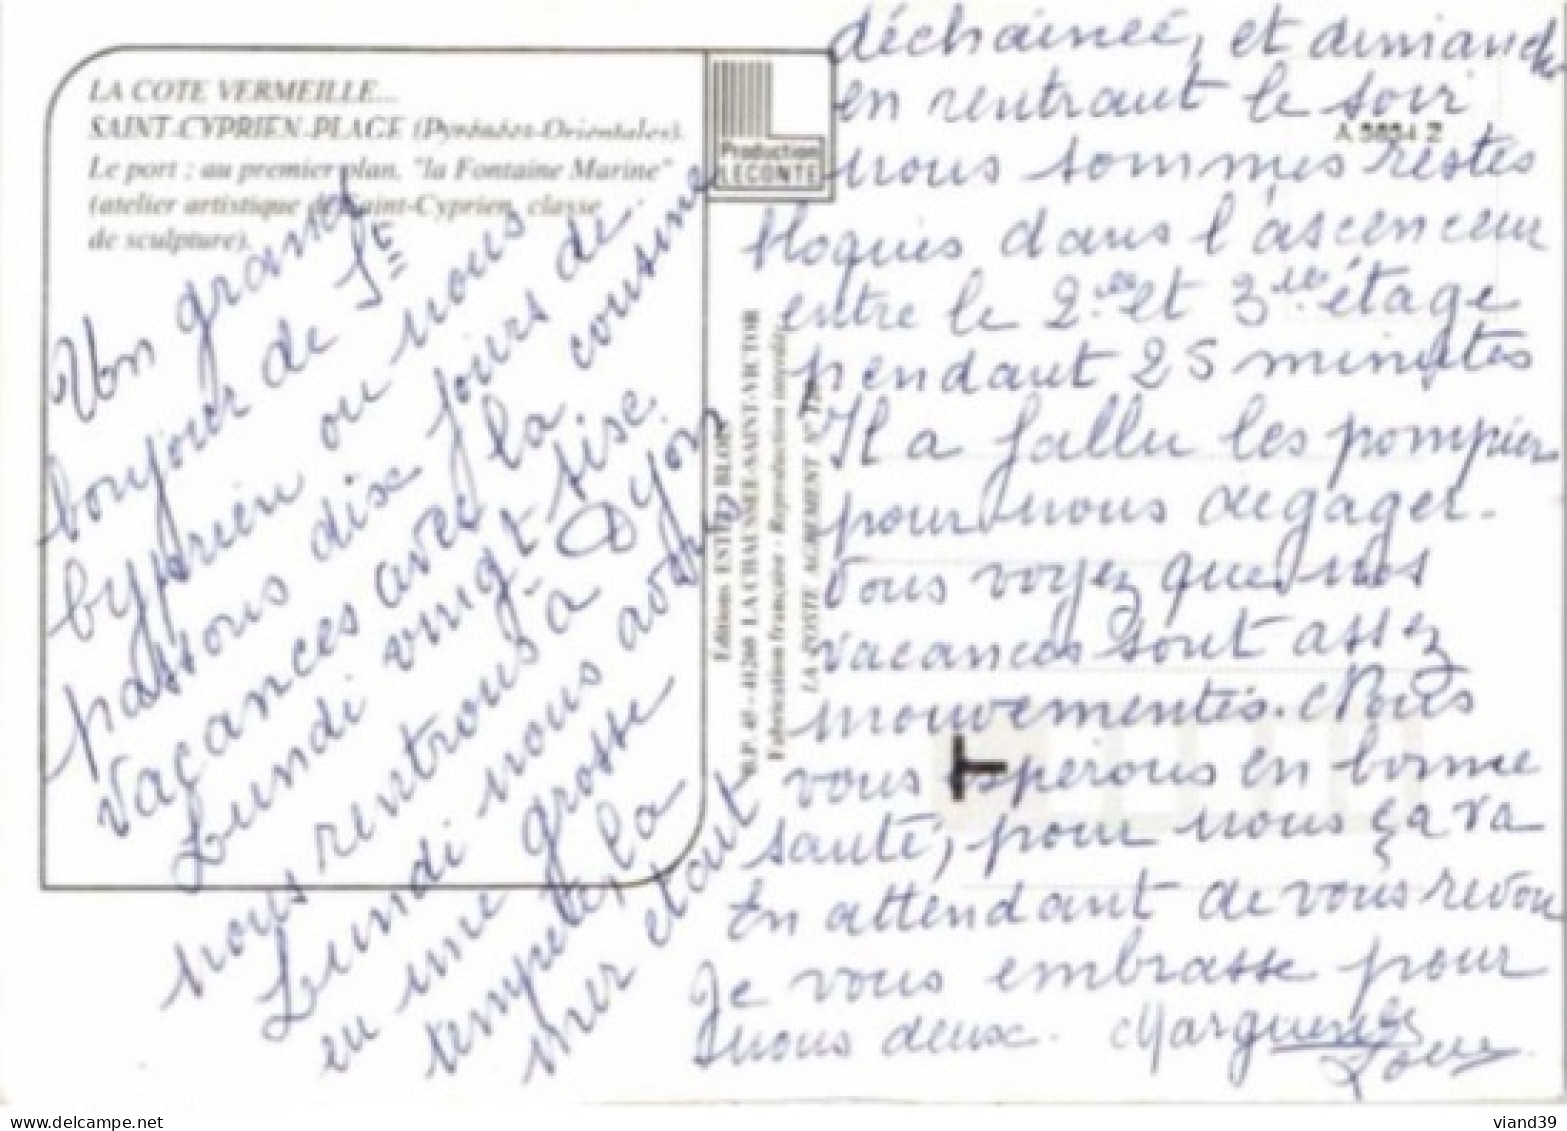 LA COTE VERMEILLE...
SAINT-CYPRIEN-PLAGE (Pyrénées-Orientales).
Le port : au premier plan, "la Fontaine Marine"
(atelier artistique de Saint-Cyprien, classe
de sculpture).
Production
LECONTE
A 5654 2
Editions ESTEL BLOIS
B.P. 45 - 41260 LA CHAUSSÉE-SAINT-VICTOR
Fabrication française - Reproduction interdite
LA POSTE AGREMENT N°
Un grand
bonjour de St
Cyprien ou nous
passons dix jours de
vacances avec la cousine
Lundi vingt sise.
nous rentrons à Dijon
Lundi nous avons
eu une grosse
tempete, la
mer etait
déchaineé, et dimanche
en rentrant le soir
nous sommes restés
bloqués dans l'ascenceur
entre le 2 et 3 étage
pendant 25 minutes
Il a fallu les pompiers
pour nous degager.
Vous voyez que nos
vacances sont assez
mouvementés. Nous
vous esperons en bonne
santé, pour nous ça va
En attendant de vous revoir
Je vous embrasse pour
nous deux. Marguerite